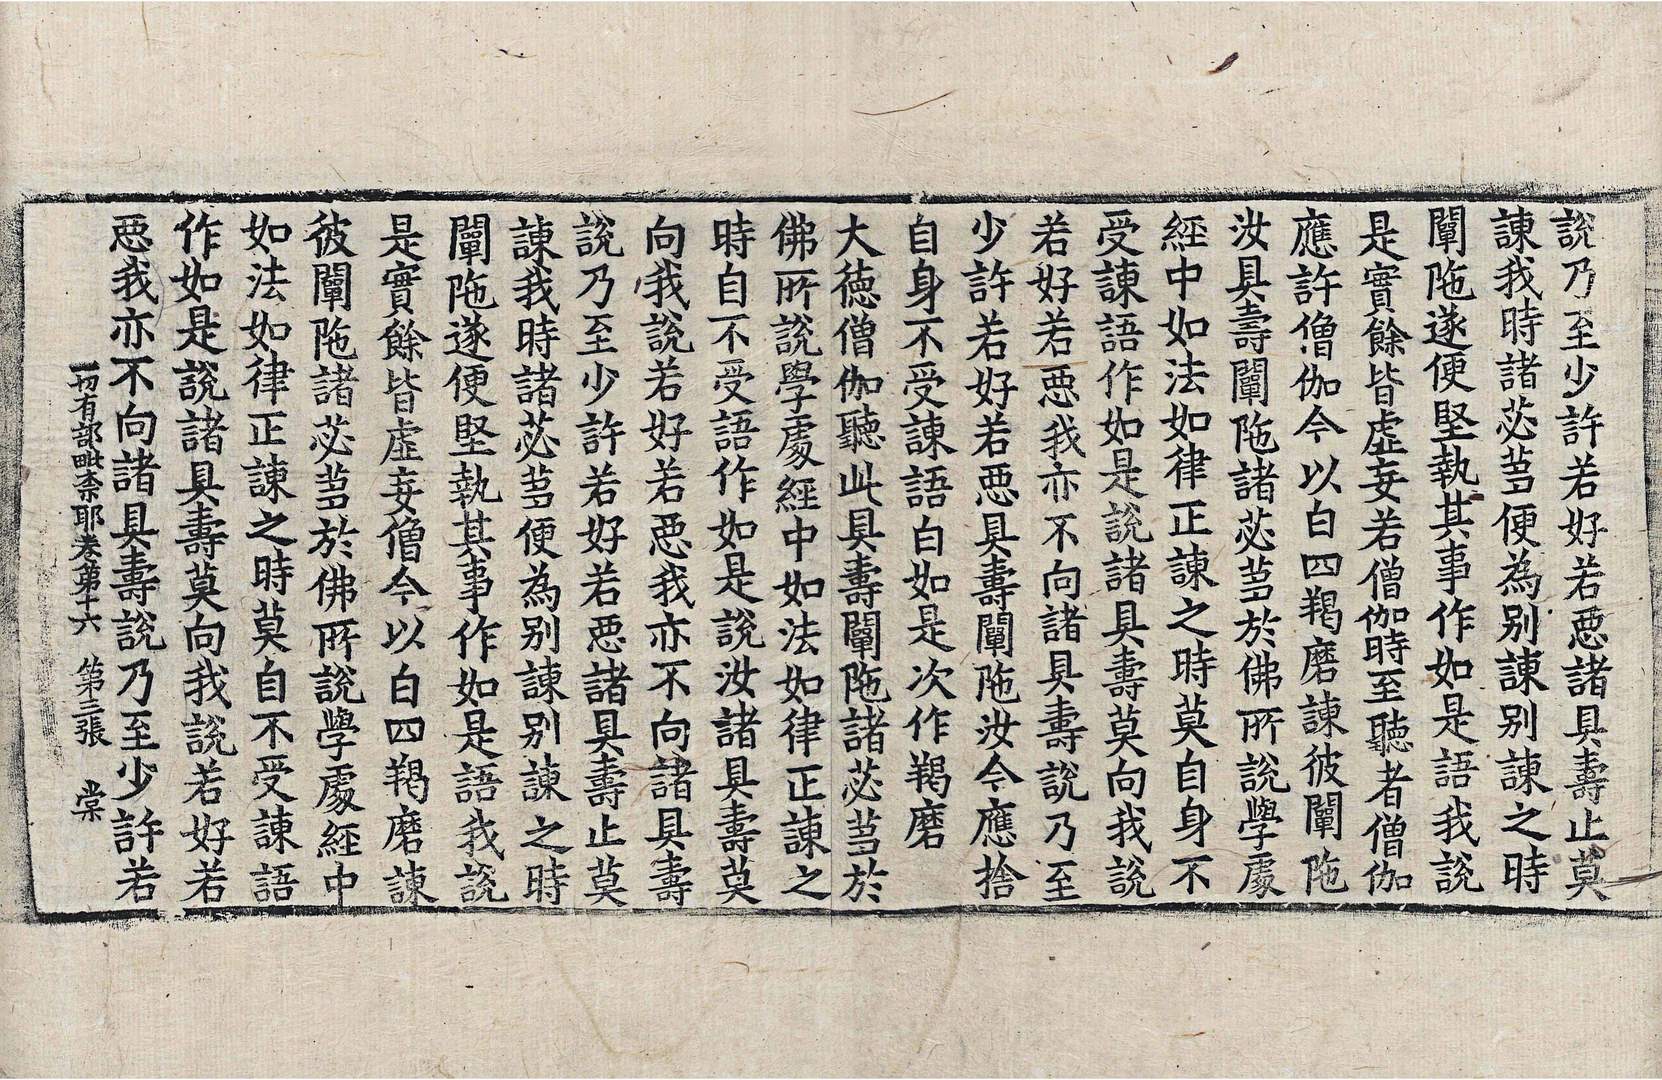 說乃至少許若好若惡諸具壽止莫
諫我時諸苾芻便為別諫別諫之時
闡陁遂便堅執其事作如是語我說
是實餘皆虛妄若僧伽時至聽者僧伽
應許僧伽今以白四羯磨諫彼闡陁
汝具壽闡陁諸苾芻於佛所說學處
經中如法如律正諫之時莫自身不
受諫語作如是說諸具壽莫向我說
若好若惡我亦不向諸具壽說乃至
少許若好若惡具壽闡陁汝今應捨
自身不受諫語白如是次作羯磨
大德僧伽聽此具壽闡陁諸苾芻於
佛所說學處經中如法如律正諫之
時自不受語作如是說汝諸具壽莫
向我說若好若惡我亦不向諸具壽
說乃至少許若好若惡諸具壽止莫
諫我時諸苾芻便為別諫別諫之時
闡陁遂便堅執其事作如是語我說
是實餘皆虛妄僧今以白四羯磨諫
彼闡陁諸苾芻於佛所說學處經中
如法如律正諫之時莫自不受諫語
作如是說諸具壽莫向我說若好若
惡我亦不向諸具壽說乃至少許若
一切有部毗柰耶卷第十六　第三張　棠